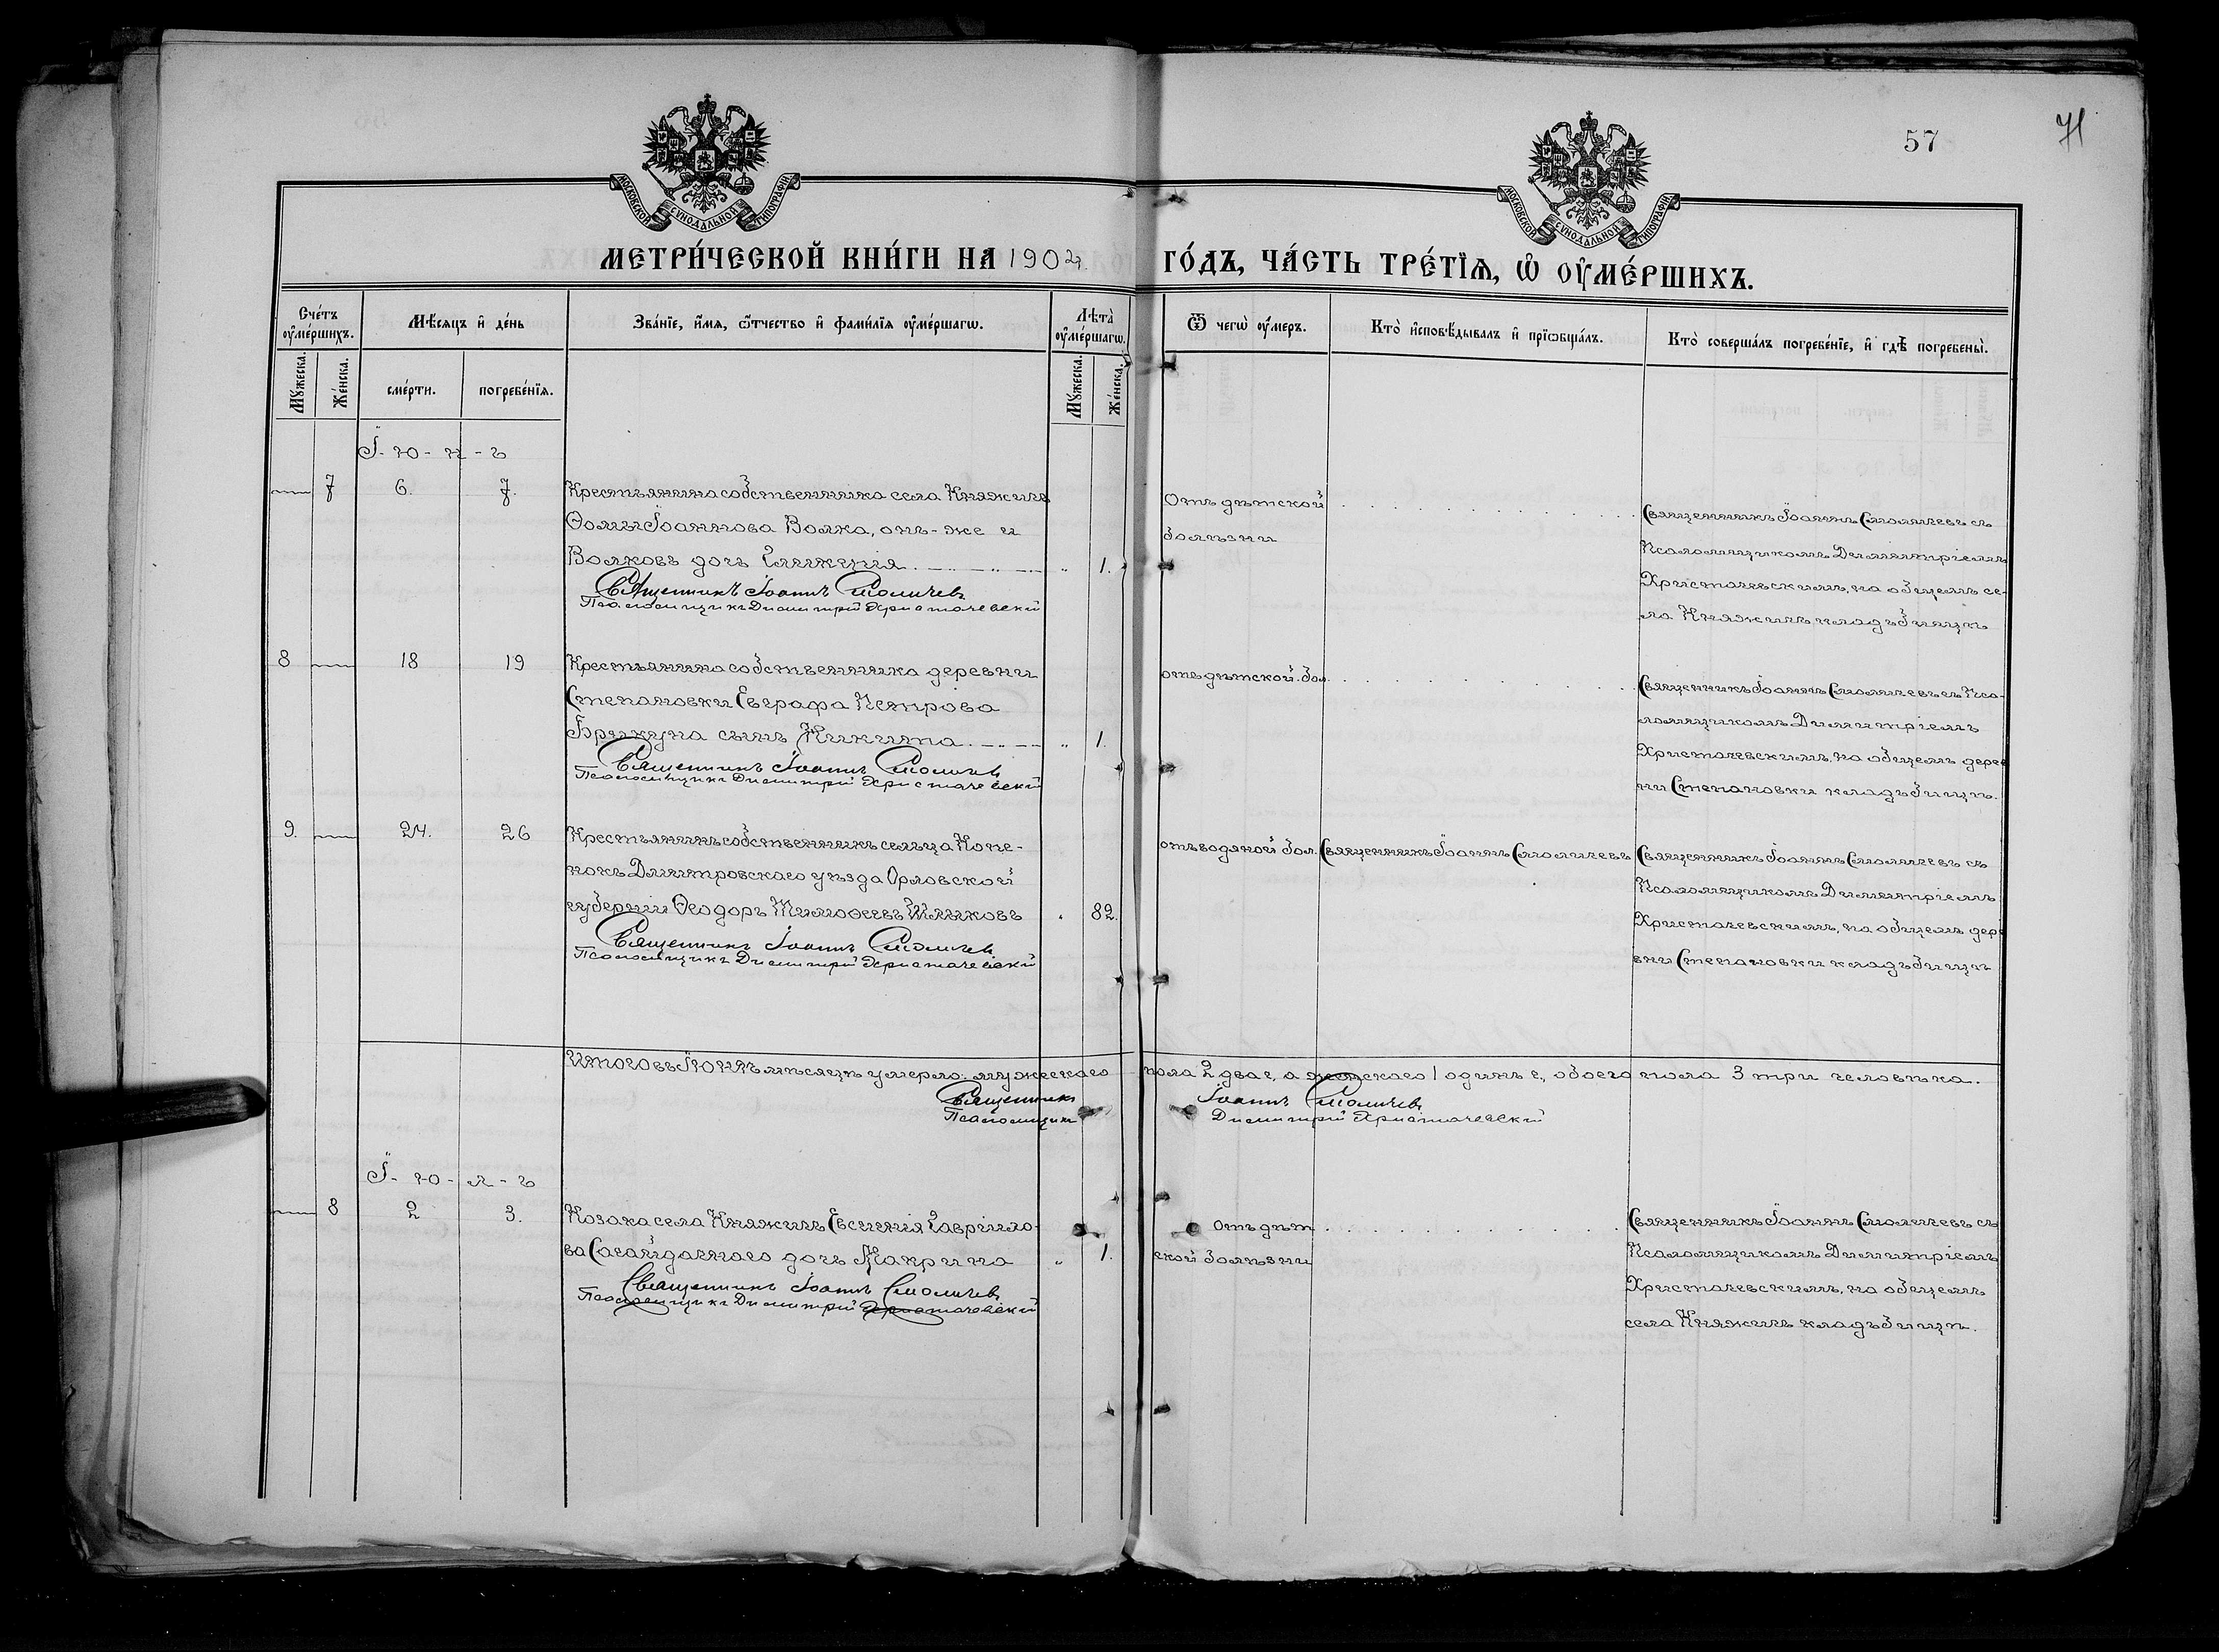 57
71
МОСКОВСКОЙ СУНОДАЛЬНОЙ ТИПОГРАФІИ
МОСКОВСКОЙ СУНОДАЛЬНОЙ ТИПОГРАФІИ
МЕТРИ́ЧЕСКОЙ КНИ́ГИ НА 1902 ГО́ДЪ, ЧА́СТЬ ТРЕ́ТЇѦ, Ѡ҆ ОУ҆МЕ́РШИХЪ.
Сче́тъ оу҆ме́ршихъ.
Мѣ́сяцъ и҆ де́нь
Зва́нїе, и҆́мя, ѻ҆́тчество и҆ фами́лїя оу҆ме́ршагѡ.
Лѣ́та оу҆ме́ршагѡ.
Ѿ чегѡ̀ оу҆́меръ.
Кто̀ и҆сповѣ́дывалъ и҆ прїѡбща́лъ.
Кто̀ соверша́лъ погребе́нїе, и҆ гдѣ̀ погребены̀.
Мꙋ́жеска.
Же́нска.
сме́рти.
погребе́нїя.
Мꙋ́жеска.
Же́нска.
І-ю-н-ь
7 6. 7. Крестьянина собственника села Княжичь
Ѳомы Іоаннова Волка, онъ-же и
Волковъ дочь Гликерія " 1.
Священникъ Іоаннъ Смоличевъ
Псаломщикъ Димитрій Христачевскій
Отъ дѣтской
болѣзни
Священникъ Іоаннъ Смоличевъ съ
Псаломщикомъ Димитріемъ
Христачевскимъ, на общемъ се-
ла Княжичъ кладбищѣ
8 18 19 Крестьянина собственника деревни
Степановки Евграфа Петрова
Брикуна сынъ Никита " 1.
Священникъ Іоаннъ Смоличевъ
Псаломщикъ Димитрій Христачевскій
отъ дѣтской. бол.
Священникъ Іоаннъ Смоличевъ съ Пса-
ломщикомъ Димитріемъ
Христачевскимъ, на общемъ дерев
ни Степановки кладбищѣ.
9. 24. 26 Крестьянинъ собственникъ сельца Копе-
нокъ Дмитровскаго уѣзда Орловской
губерніи Ѳеодоръ Тимоѳеевъ 82.
Священникъ Іоаннъ Смоличевъ
Псаломщикъ Димитрій Христачевскій
отъ водяной бол.
Священникъ Іоаннъ Смоличевъ
Священникъ Іоаннъ Смоличевъ съ
Псаломщикомъ Димитріемъ
Христачевскимъ, на общемъ дере
вни Степановки кладбищѣ
Итого въ Іюнѣ мѣсяцѣ умерло: мужескаго пола 2 двое, а женскаго 1 одинъ е, обоего пола 3 три человѣка.
Священникъ Іоаннъ Смоличевъ
Псаломщикъ Димитрій Христачевскій
І-ю-л-ь
8 2 3. Козака села Княжичъ Евсигнія Гавріило-
ва Сагайдачнаго дочь Макрина " 1.
Священникъ Іоаннъ Смоличевъ
Псаломщикъ Димитрій Христачевскій
Отъ дѣт
ской болѣзни
Священникъ Іоаннъ Смоличевъ съ
Псаломщикомъ Димитріемъ
Христачевскимъ, на общемъ
села Княжичъ кладбищѣ.